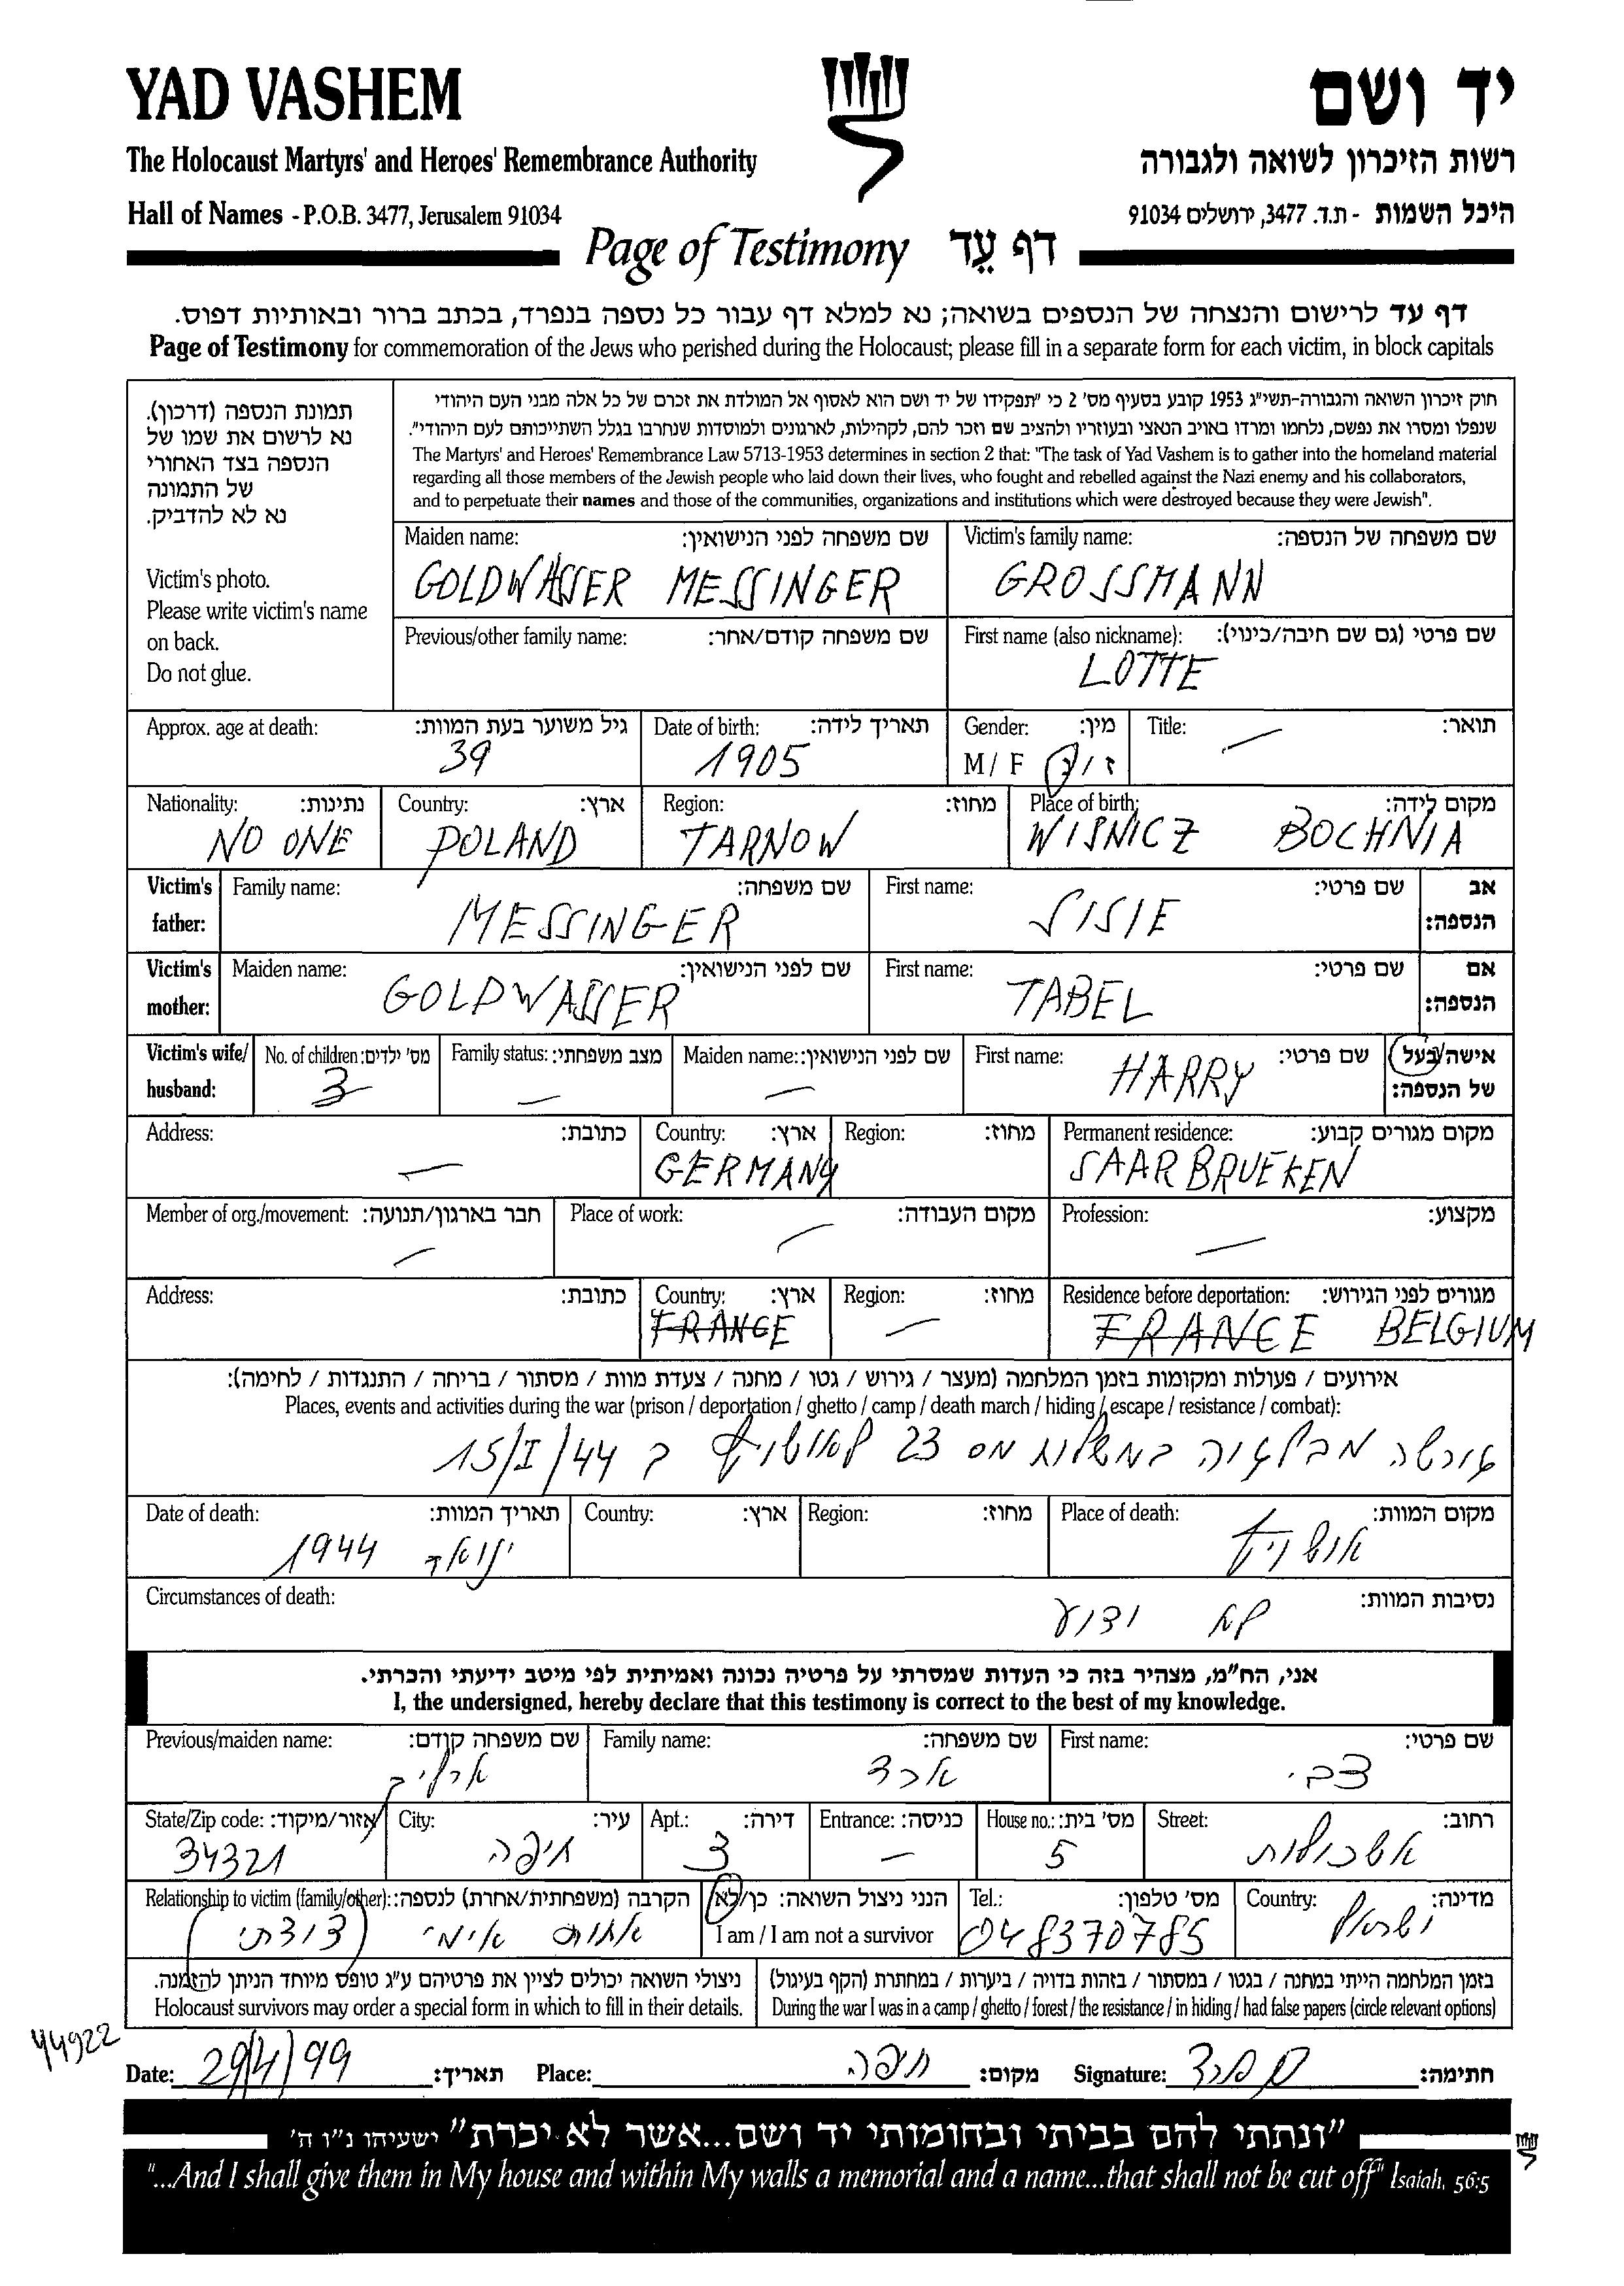 YAD VASHEM
יד ושם
The Holocaust Martyrs' and Heroes' Remembrance Authority
רשות הזיכרון לשואה ולגבורה
Hall of Names - P.O.B. 3477, Jerusalem 91034
היכל השמות - ת.ד. 3477, ירושלים 91034
Page of Testimony דף עֵד
דף עד לרישום והנצחה של הנספים בשואה; נא למלא דף עבור כל נספה בנפרד, בכתב ברור ובאותיות דפוס.
Page of Testimony for commemoration of the Jews who perished during the Holocaust; please fill in a separate form for each victim, in block capitals
תמונת הנספה (דרכון).
נא לרשום את שמו של
הנספה בצד האחורי
של התמונה
נא לא להדביק.
Victim's photo.
Please write victim's name
on back.
Do not glue.
חוק זיכרון השואה והגבורה-תשי"ג 1953 קובע בסעיף מס' 2 כי "תפקידו של יד ושם הוא לאסוף אל המולדת את זכרם של כל אלה מבני העם היהודי
שנפלו ומסרו את נפשם, נלחמו ומרדו באויב הנאצי ובעוזריו ולהציב שם וזכר להם, לקהילות, לארגונים ולמוסדות שנחרבו בגלל השתייכותם לעם היהודי".
The Martyrs' and Heroes' Remembrance Law 5713-1953 determines in section 2 that: "The task of Yad Vashem is to gather into the homeland material
regarding all those members of the Jewish people who laid down their lives, who fought and rebelled against the Nazi enemy and his collaborators,
and to perpetuate their names and those of the communities, organizations and institutions which were destroyed because they were Jewish".
Maiden name: שם משפחה לפני הנישואין: Victim's family name: שם משפחה של הנספה:
GOLDWASSER MESSINGER GROSSMANN
Previous/other family name: שם משפחה קודם/אחר: First name (also nickname): שם פרטי (גם שם חיבה/כינוי):
LOTTE
Approx. age at death: גיל משוער בעת המוות: Date of birth: תאריך לידה: Gender: מין: Title: תואר:
39 1905 M / F ז / נ —
Nationality: נתינות: Country: ארץ: Region: מחוז: Place of birth: מקום לידה:
NO ONE POLAND TARNOW WISNICZ BOCHNIA
Victim's father: Family name: שם משפחה: First name: שם פרטי: אב הנספה:
MESSINGER SISIE
Victim's mother: Maiden name: שם לפני הנישואין: First name: שם פרטי: אם הנספה:
GOLDWASSER TABEL
Victim's wife/ husband: No. of children: מס' ילדים: Family status: מצב משפחתי: Maiden name: שם לפני הנישואין: First name: שם פרטי: אישה/בעל של הנספה:
3 — — HARRY
Address: כתובת: Country: ארץ: Region: מחוז: Permanent residence: מקום מגורים קבוע:
— GERMANY SAARBRUEKEN
Member of org./movement: חבר בארגון/תנועה: Place of work: מקום העבודה: Profession: מקצוע:
— — —
Address: כתובת: Country: ארץ: Region: מחוז: Residence before deportation: מגורים לפני הגירוש:
FRANCE — FRANCE BELGIUM
אירועים / פעולות ומקומות בזמן המלחמה (מעצר / גירוש / גטו / מחנה / צעדת מוות / מסתור / בריחה / התנגדות / לחימה):
Places, events and activities during the war (prison / deportation / ghetto / camp / death march / hiding / escape / resistance / combat):
גורשה מבלגיה במשלוח מס 23 לאושויץ ב 15/I/44
Date of death: תאריך המוות: Country: ארץ: Region: מחוז: Place of death: מקום המוות:
ינואר 1944 אושויץ
Circumstances of death: נסיבות המוות:
לא ידוע
אני, הח"מ, מצהיר בזה כי העדות שמסרתי על פרטיה נכונה ואמיתית לפי מיטב ידיעתי והכרתי.
I, the undersigned, hereby declare that this testimony is correct to the best of my knowledge.
Previous/maiden name: שם משפחה קודם: Family name: שם משפחה: First name: שם פרטי:
ארליך ארד צבי
State/Zip code: אזור/מיקוד: City: עיר: Apt.: דירה: Entrance: כניסה: House no.: מס' בית: Street: רחוב:
34321 חיפה 3 — 5 אשכולות
Relationship to victim (family/other): הקרבה (משפחתית/אחרת) לנספה: הנני ניצול השואה: כן/לא Tel.: מס' טלפון: Country: מדינה:
אחות אימי (דודתי) I am / I am not a survivor 048370785 ישראל
ניצולי השואה יכולים לציין את פרטיהם ע"ג טופס מיוחד הניתן להזמנה.
Holocaust survivors may order a special form in which to fill in their details.
בזמן המלחמה הייתי במחנה / בגטו / במסתור / בזהות בדויה / ביערות / במחתרת (הקף בעיגול)
During the war I was in a camp / ghetto / forest / the resistance / in hiding / had false papers (circle relevant options)
44922
Date: 29/4/99 תאריך: Place: חיפה מקום: Signature: חתימה:
"ונתתי להם בביתי ובחומותי יד ושם...אשר לא יכרת" ישעיהו נ"ו ה'
"...And I shall give them in My house and within My walls a memorial and a name...that shall not be cut off" Isaiah, 56:5